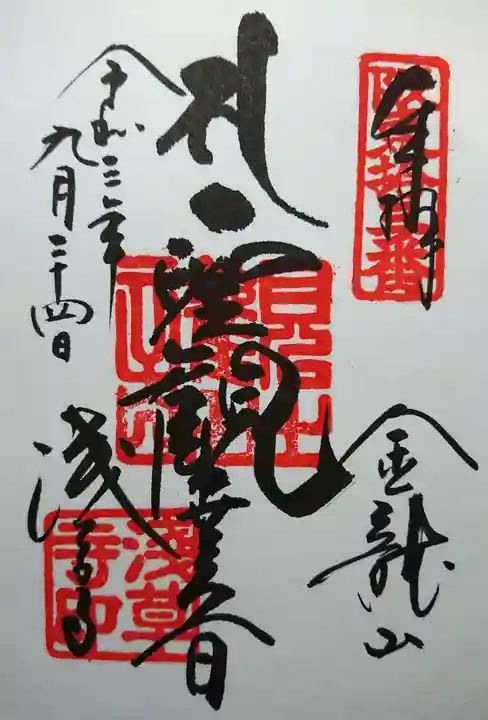 奉拝
金龍山
聖観世音
令和三年
九月二十四日
浅草寺
浅草寺印